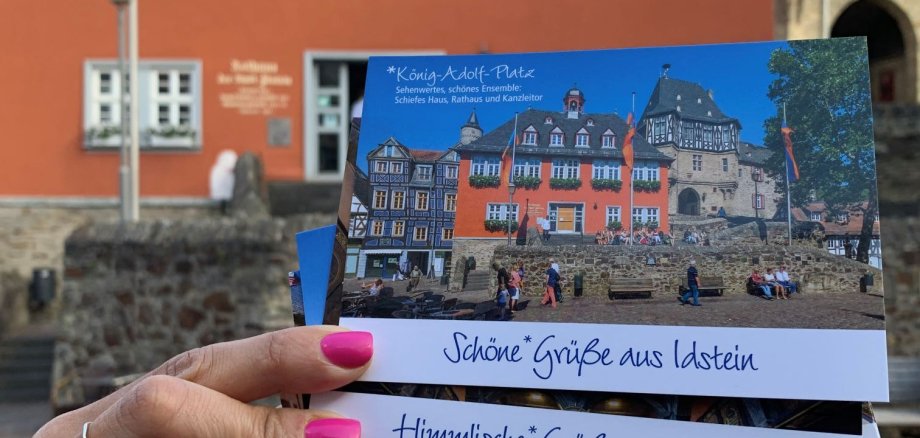 *König-Adolf-Platz
Sehenswertes, schönes Ensemble:
Schiefes Haus, Rathaus und Kanzleitor
Schöne*Grüße aus Idstein
Himmlische*Grüße
Rathaus